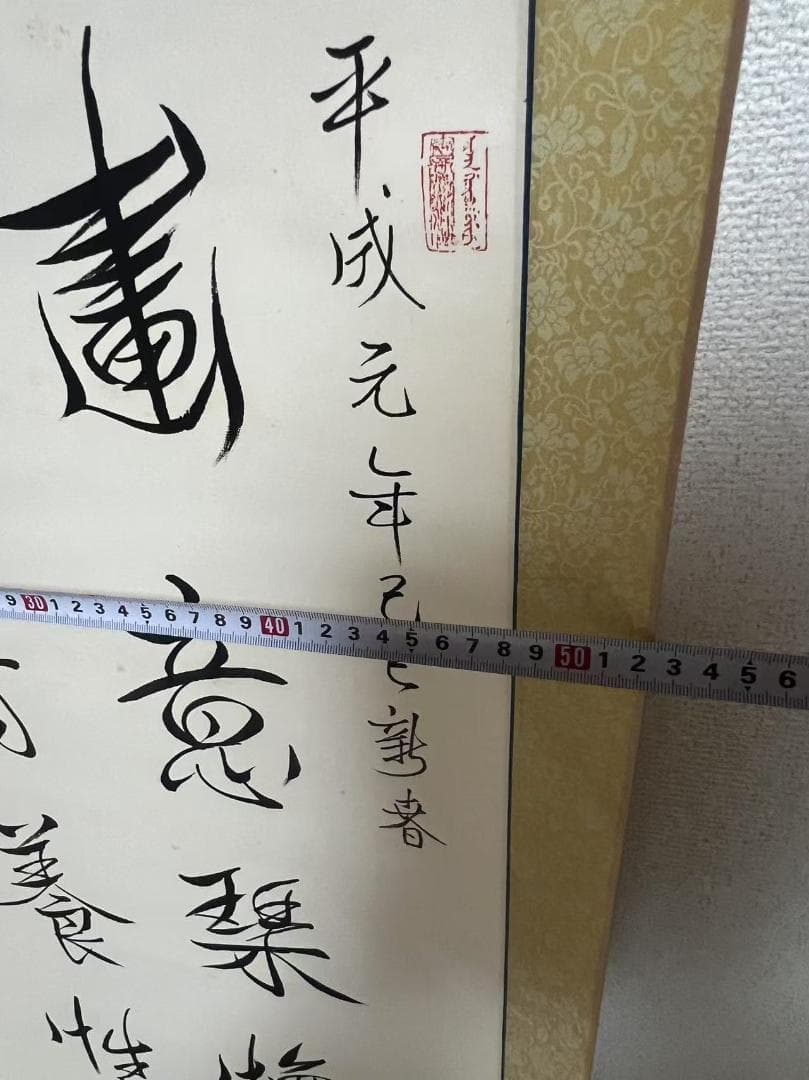 平成元年己巳新春
畫意琴
養性
9 30 1 2 3 4 5 6 7 8 9 40 1 2 3 4 5 6 7 8 9 50 1 2 3 4 5 6